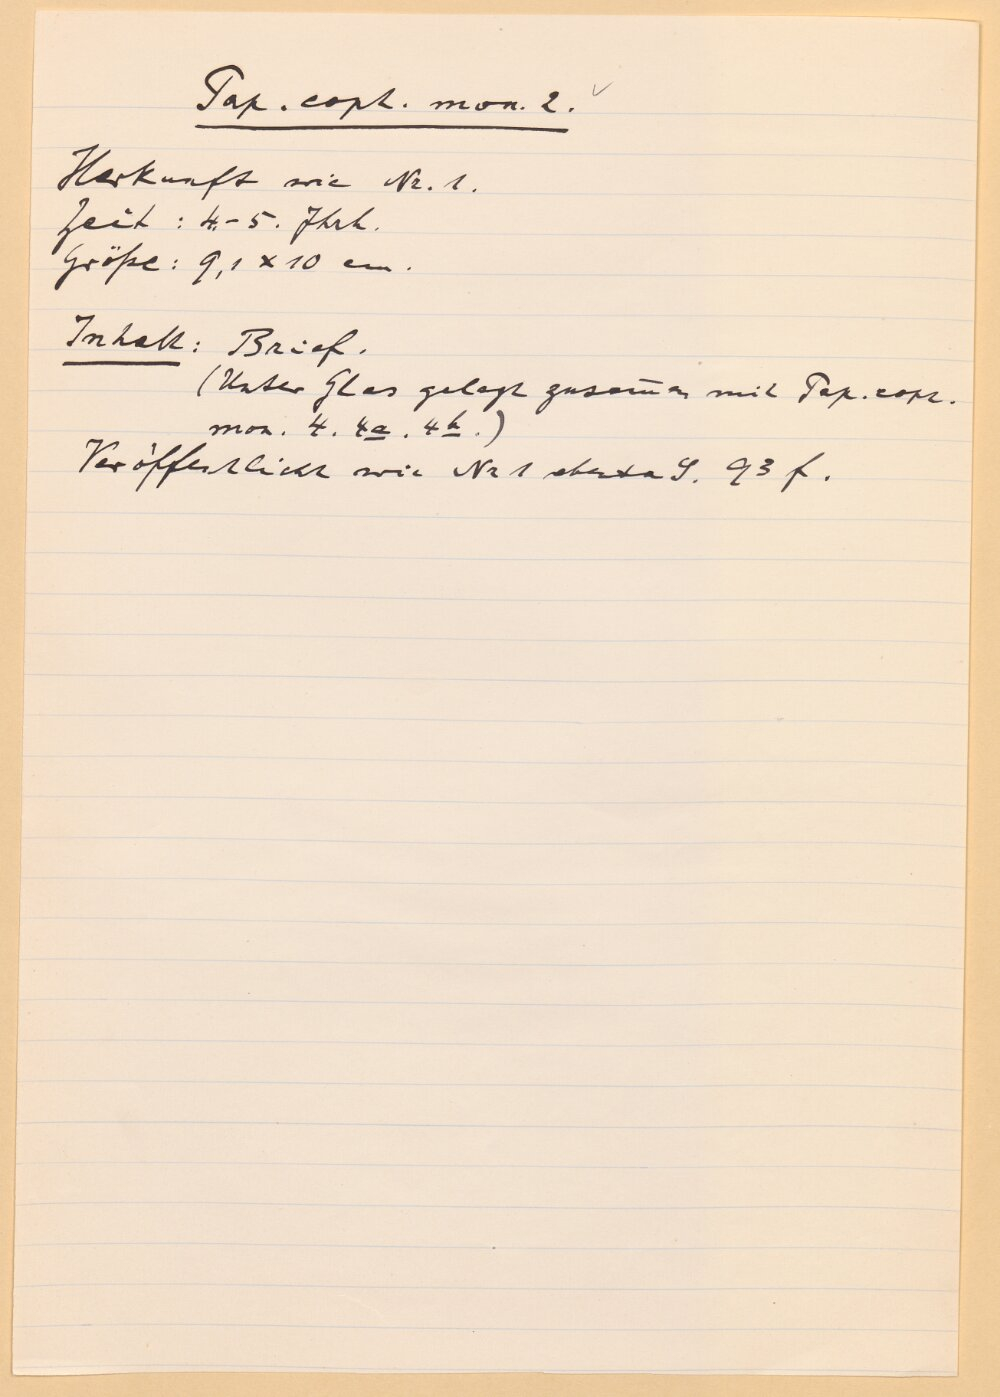 Pap. copt. mon. 2.
Herkunft wie Nr. 1.
Zeit: 4.-5. Jhrh.
Größe: 9,1 x 10 cm.
Inhalt: Brief.
(Unter Glas gelegt zusam̄en mit Pap. copt.
mon. 4. 4a. 4b.)
Veröffentlicht wie Nr 1 ebenda S. 93 f.